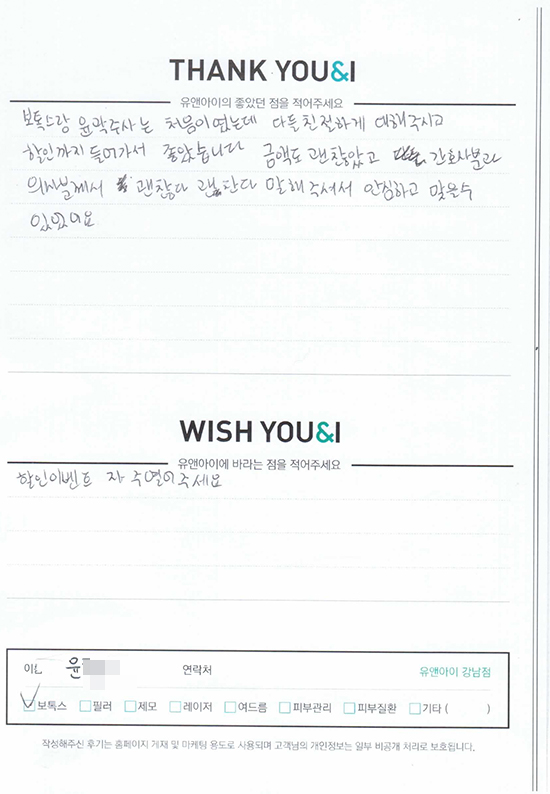 THANK YOU&I
유앤아이의 좋았던 점을 적어주세요
보톡스랑 윤곽주사는 처음이였는데 다들친절하게 대해주시고
할인까지 들어가서 좋았습니다 금액도 괜찮았고 간호사분과
의사분께서 괜찮다 괜찮다 말해주셔서 안심하고 맞을수
있었어요
WISH YOU&I
유앤아이에 바라는 점을 적어주세요
할인이벤트 자주열어주세요
윤 연락처 유앤아이 강남점
보톡스 필러 제모 레이저 여드름 피부관리 피부질환 기타 ( )
작성해주신 후기는 홈페이지 게재 및 마케팅 용도로 사용되며 고객님의 개인정보는 일부 비공개 처리로 보호됩니다.